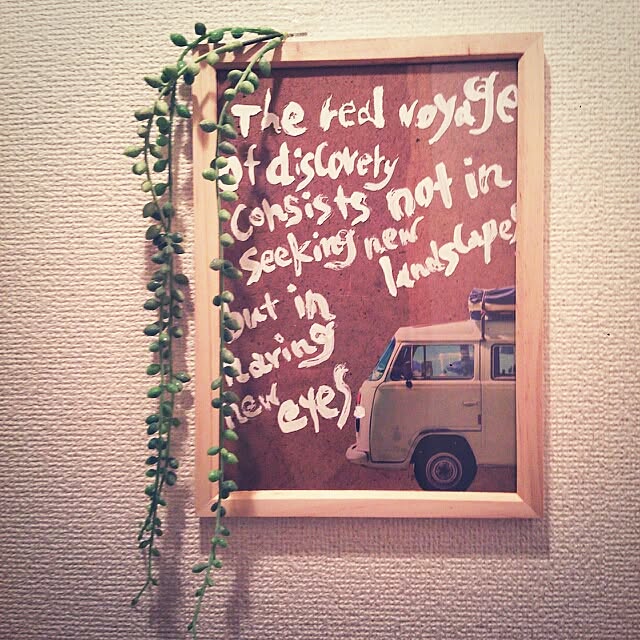 The real voyage
of discovery
consists not in
seeking new
landscapes
but in
having
new eyes.